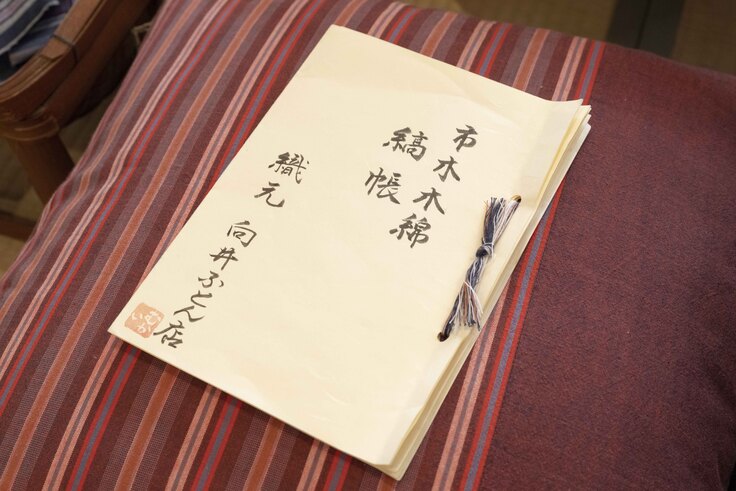 市木木綿
縞帳
織元 向井ふとん店
むかい